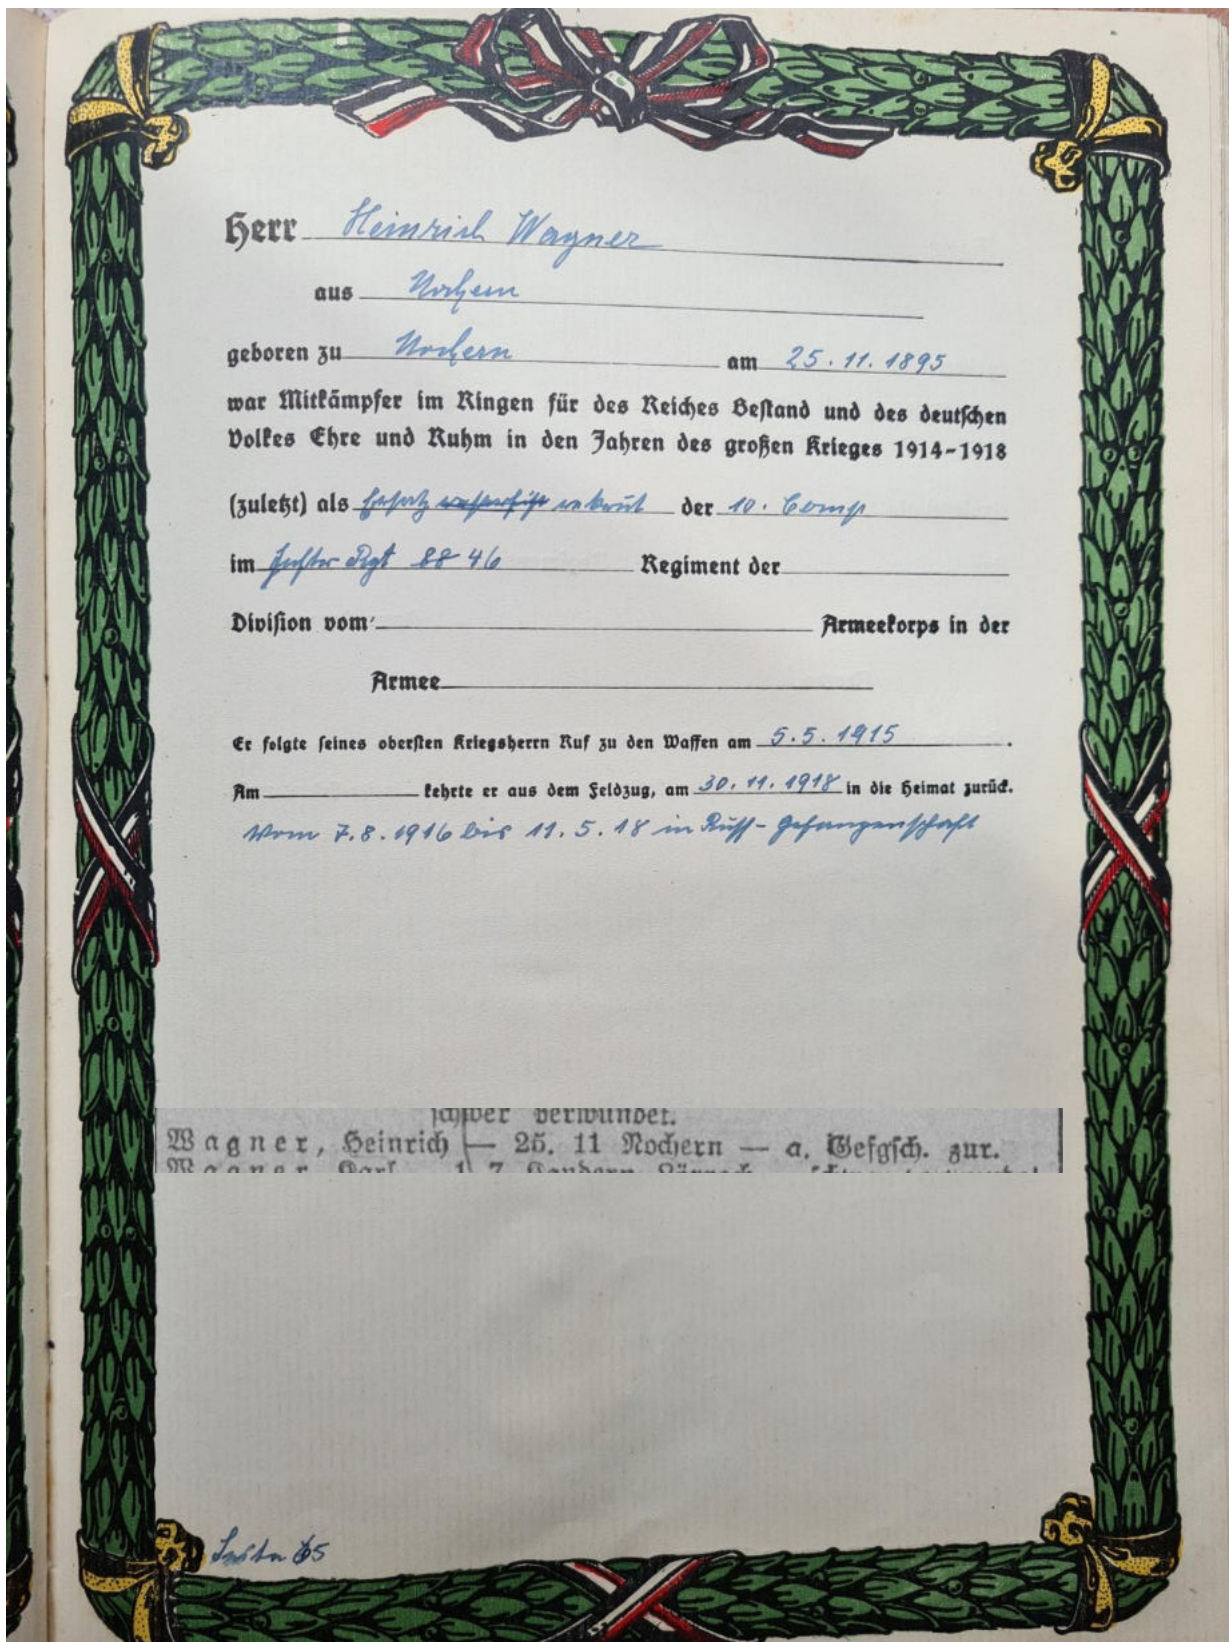 Herr Heinrich Wagner
aus Nochern
geboren zu Nochern am 25.11.1895
war Mitkämpfer im Ringen für des Reiches Bestand und des deutschen
Volkes Ehre und Ruhm in den Jahren des großen Krieges 1914-1918
(zuletzt) als Ersatz rekrut der 10. Comp
im Rgt 88 46 Regiment der
Division vom Armeekorps in der
Armee
Er folgte seines obersten Kriegsherrn Ruf zu den Waffen am 5.5.1915.
Am kehrte er aus dem Feldzug, am 30.11.1918 in die Heimat zurück.
Vom 7.8.1916 bis 11.5.18 in Russ-Gefangenschaft
schwer verwundet.
Wagner, Heinrich — 25. 11 Nochern — a. Gefgsch. zur.
Wagner, Karl
65